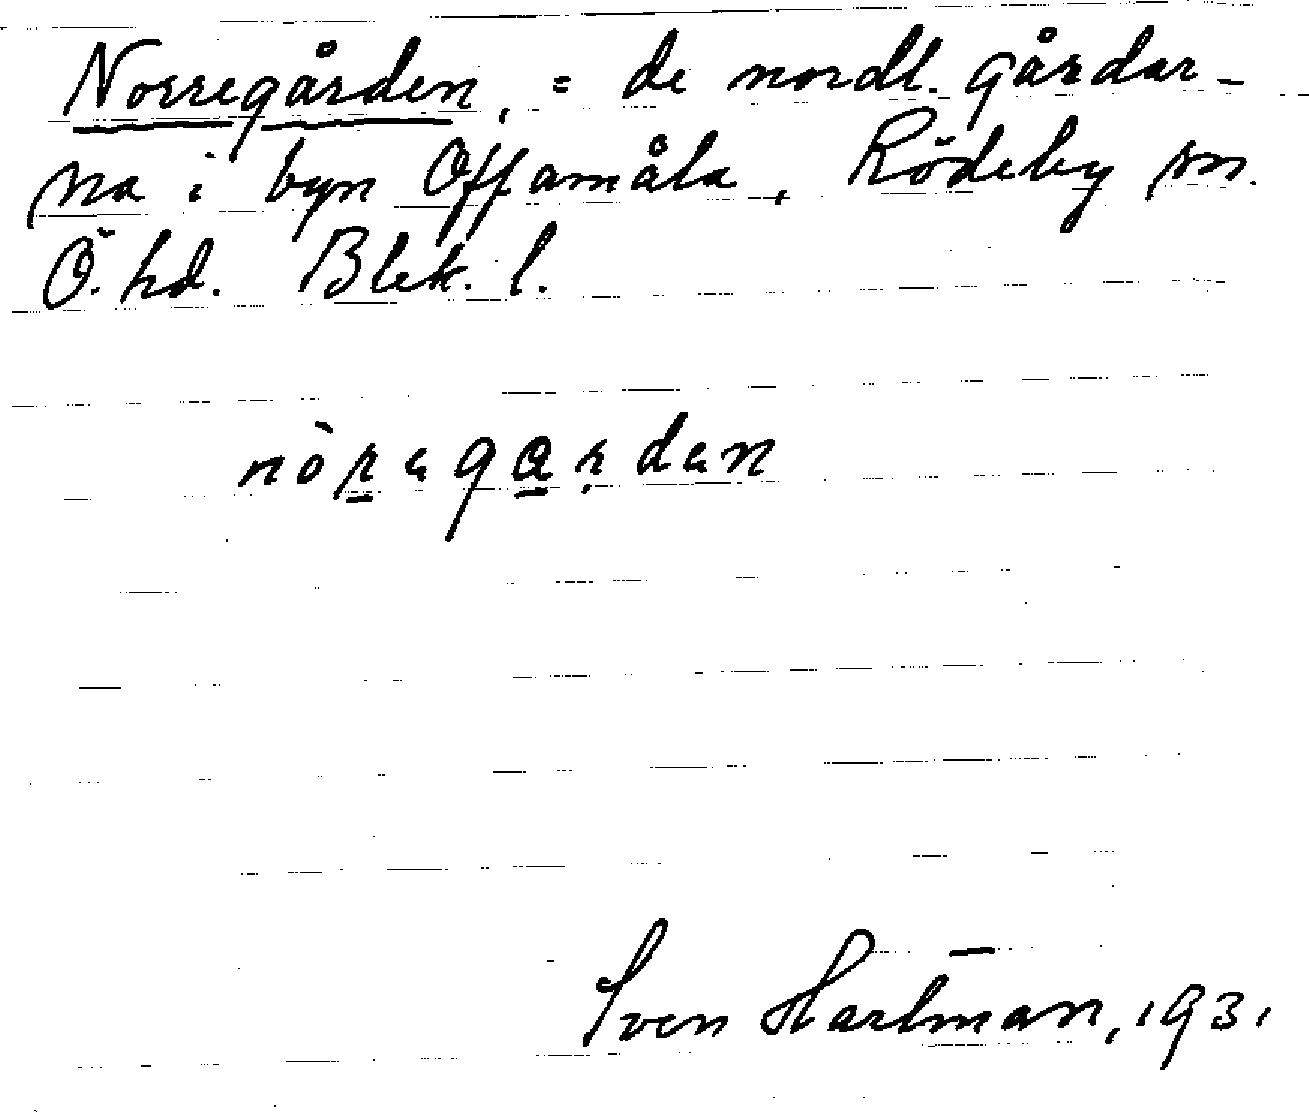 Norregården, = de nordl. gårdar-
na i byn Offamåla, Rödeby sn.
Ö. hd. Blek. l.
nòregarden
Sven Hartman, 1931